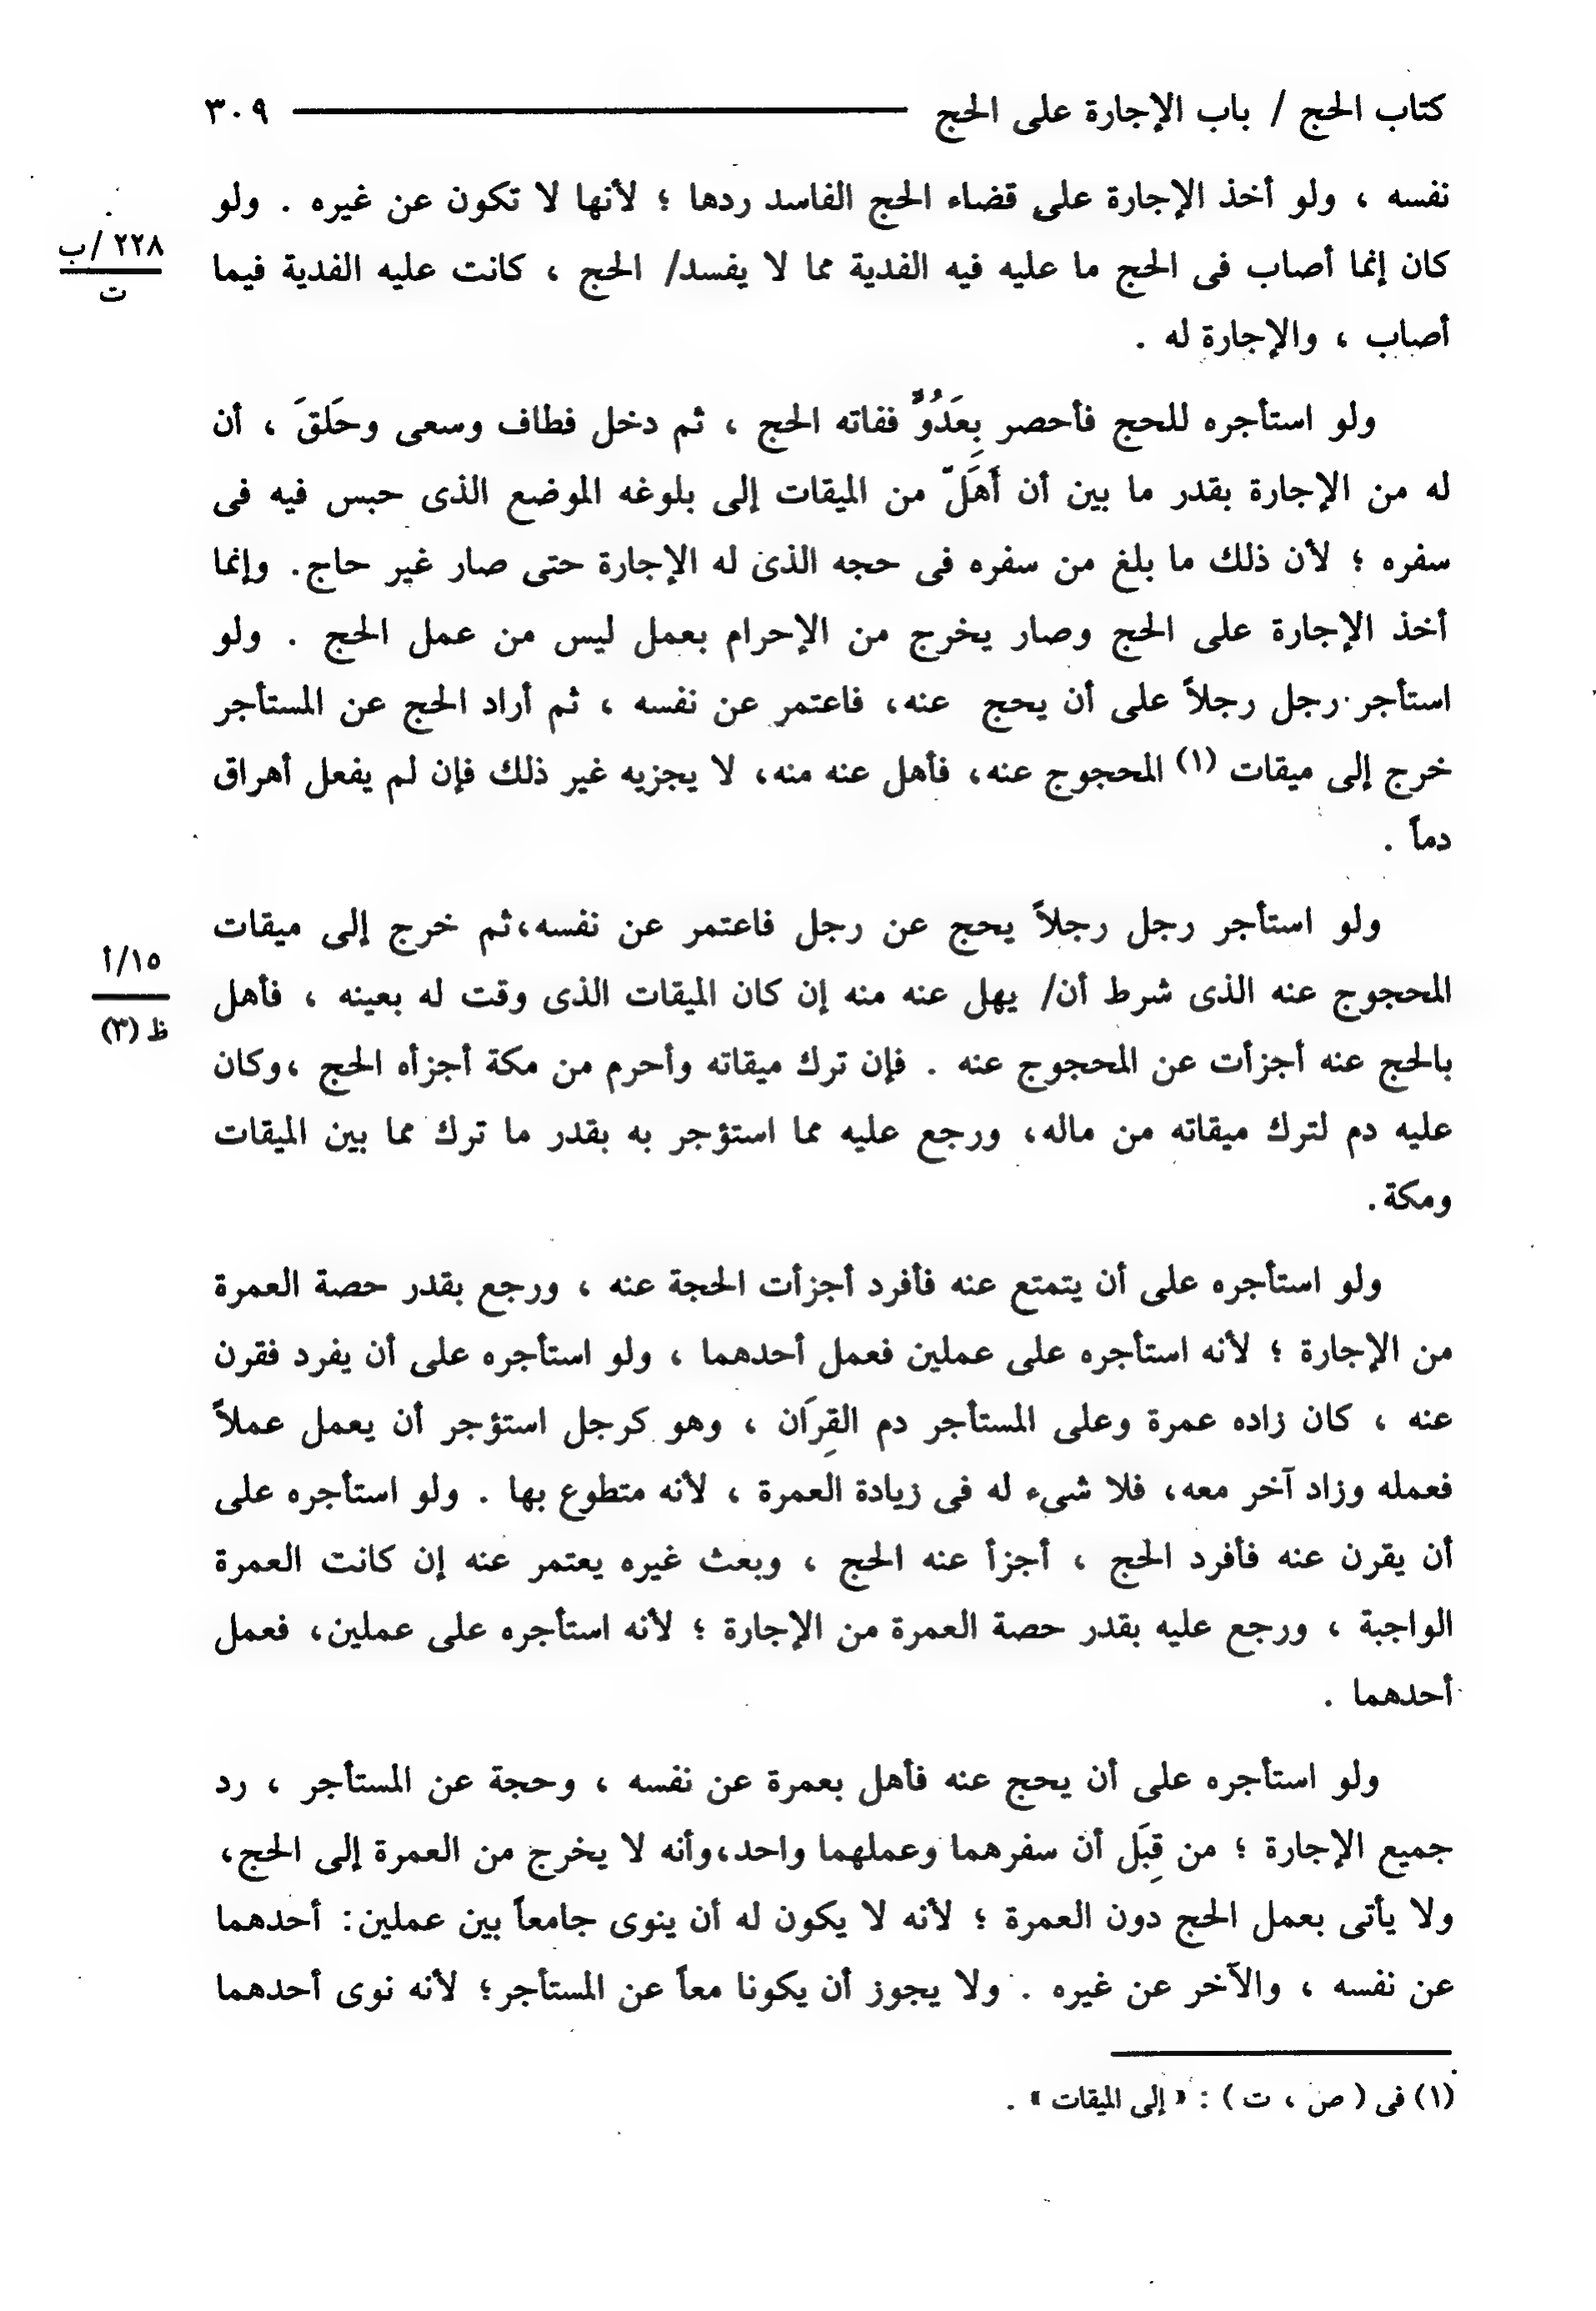 كتاب الحج / باب الإجارة على الحج ــــــــــــــــ ٣٠٩
نفسه ، ولو أخذ الإجارة على قضاء الحج الفاسد ردها ؛ لأنها لا تكون عن غيره . ولو
كان إنما أصاب فى الحج ما عليه فيه الفدية مما لا يفسد/ الحج ، كانت عليه الفدية فيما
٢٢٨ /ب
ت
أصاب ، والإجارة له .
ولو استأجره للحج فأحصر بِعَدُوٍّ ففاته الحج ، ثم دخل فطاف وسعى وحَلقَ ، أن
له من الإجارة بقدر ما بين أن أَهَلّ من الميقات إلى بلوغه الموضع الذى حبس فيه فى
سفره ؛ لأن ذلك ما بلغ من سفره فى حجه الذى له الإجارة حتى صار غير حاج. وإنما
أخذ الإجارة على الحج وصار يخرج من الإحرام بعمل ليس من عمل الحج . ولو
استأجر رجل رجلاً على أن يحج عنه، فاعتمر عن نفسه ، ثم أراد الحج عن المستأجر
خرج إلى ميقات (١) المحجوج عنه، فأهل عنه منه، لا يجزيه غير ذلك فإن لم يفعل أهراق
دماً .
ولو استأجر رجل رجلاً يحج عن رجل فاعتمر عن نفسه،ثم خرج إلى ميقات
المحجوج عنه الذى شرط أن/ يهل عنه منه إن كان الميقات الذى وقت له بعينه ، فأهل
١٥/أ
ظ (٣)
بالحج عنه أجزأت عن المحجوج عنه . فإن ترك ميقاته وأحرم من مكة أجزأه الحج ،وكان
عليه دم لترك ميقاته من ماله، ورجع عليه مما استؤجر به بقدر ما ترك مما بين الميقات
ومكة.
ولو استأجره على أن يتمتع عنه فأفرد أجزأت الحجة عنه ، ورجع بقدر حصة العمرة
من الإجارة ؛ لأنه استأجره على عملين فعمل أحدهما ، ولو استأجره على أن يفرد فقرن
عنه ، كان زاده عمرة وعلى المستأجر دم القِرَان ، وهو كرجل استؤجر أن يعمل عملاً
فعمله وزاد آخر معه، فلا شىء له فى زيادة العمرة ، لأنه متطوع بها . ولو استأجره على
أن يقرن عنه فأفرد الحج ، أجزأ عنه الحج ، وبعث غيره يعتمر عنه إن كانت العمرة
الواجبة ، ورجع عليه بقدر حصة العمرة من الإجارة ؛ لأنه استأجره على عملين، فعمل
أحدهما .
ولو استأجره على أن يحج عنه فأهل بعمرة عن نفسه ، وحجة عن المستأجر ، رد
جميع الإجارة ؛ من قِبَل أن سفرهما وعملهما واحد،وأنه لا يخرج من العمرة إلى الحج،
ولا يأتى بعمل الحج دون العمرة ؛ لأنه لا يكون له أن ينوى جامعاً بين عملين: أحدهما
عن نفسه ، والآخر عن غيره . ولا يجوز أن يكونا معاً عن المستأجر؛ لأنه نوى أحدهما
(١) فى ( ص ، ت ) : « إلى الميقات » .